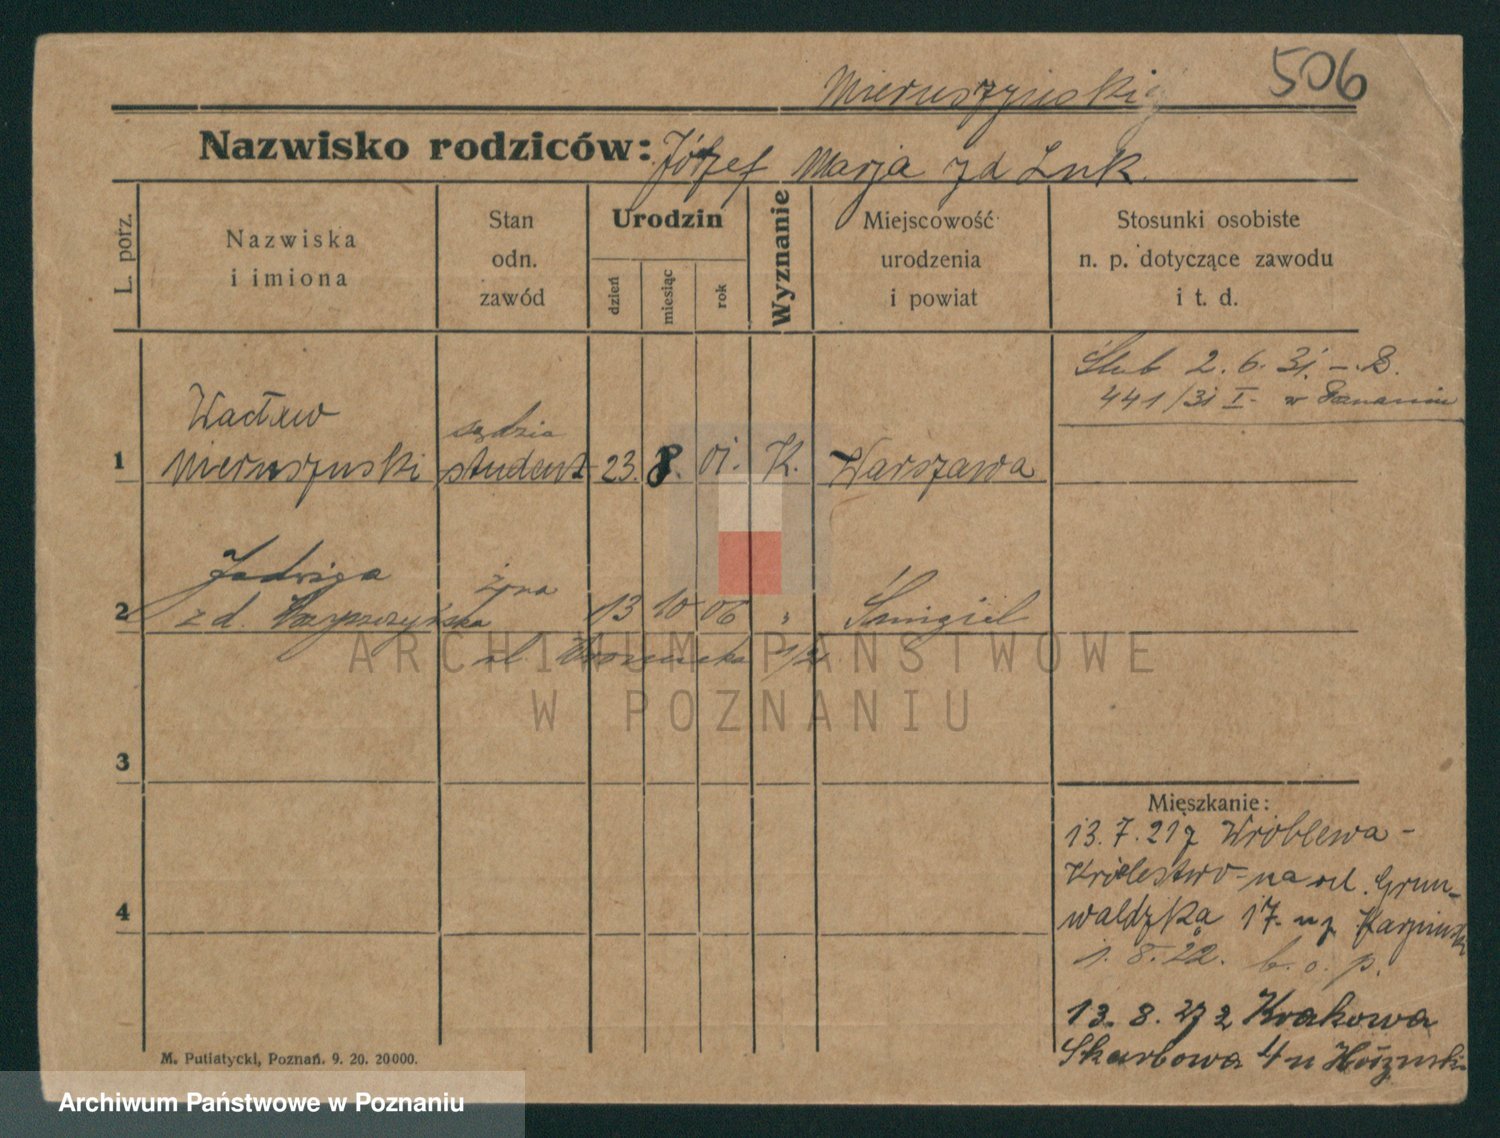 506
Mieruszyński
Nazwisko rodziców: Józef Marja zd Luk.
L. porz.
Nazwiska
i imiona
Stan
odn.
zawód
Urodzin
dzień
miesiąc
rok
Wyznanie
Miejscowość
urodzenia
i powiat
Stosunki osobiste
n. p. dotyczące zawodu
i t. d.
Ślub 2. 6. 31. – B.
441/31 I. w Poznaniu
Wacław
sędzia
1 Mieruszynski student 23. 8. 01. K. Warszawa
Jadwiga żona
2 z d. 13 10 06 " Śmigiel
ul.
ARCHIWUM PAŃSTWOWE
W POZNANIU
3
4
Mieszkanie:
13. 7. 21 z Wróblewa-
Królestwo-na ul. Grun-
waldzką 17. u p.
1. 8. 22. b. o. p.
13. 8. 27 z Krakowa
Skarbowa 4 u
M. Putiatycki, Poznań. 9. 20. 20000.
Archiwum Państwowe w Poznaniu